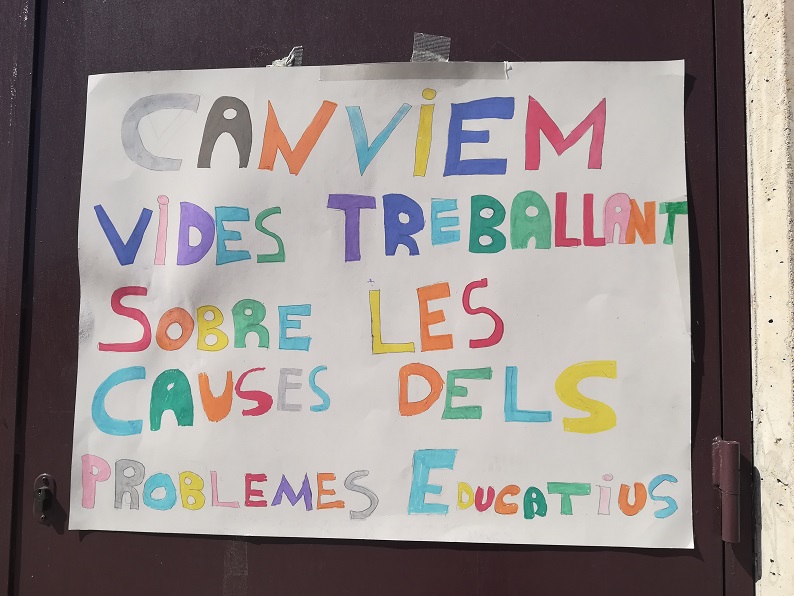 CANViEM
ViDES TREBALLANT
SOBRE LES
CAUSES DELS
PROBLEMES EDUCATiUS